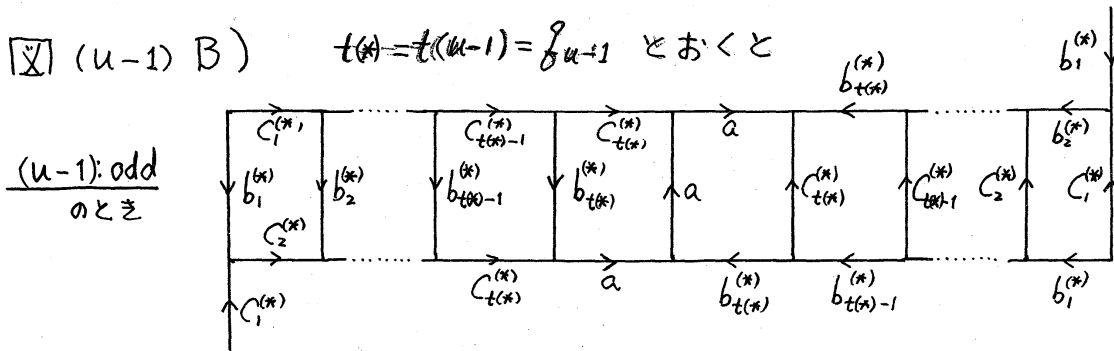 図 (u-1) B) t(*) = t(u-1) = g_{u-1} とおくと
(u-1): odd
のとき
b_1^{(*)}
b_{t(*)}^{(*)}
C_1^{(*)} C_{t(*)-1}^{(*)} C_{t(*)}^{(*)} a b_2^{(*)}
b_1^{(*)} b_2^{(*)} b_{t(*)-1}^{(*)} b_{t(*)}^{(*)} a C_{t(*)}^{(*)} C_{t(*)-1}^{(*)} C_2^{(*)} C_1^{(*)}
C_2^{(*)}
C_{t(*)}^{(*)} a b_{t(*)}^{(*)} b_{t(*)-1}^{(*)} b_1^{(*)}
C_1^{(*)}